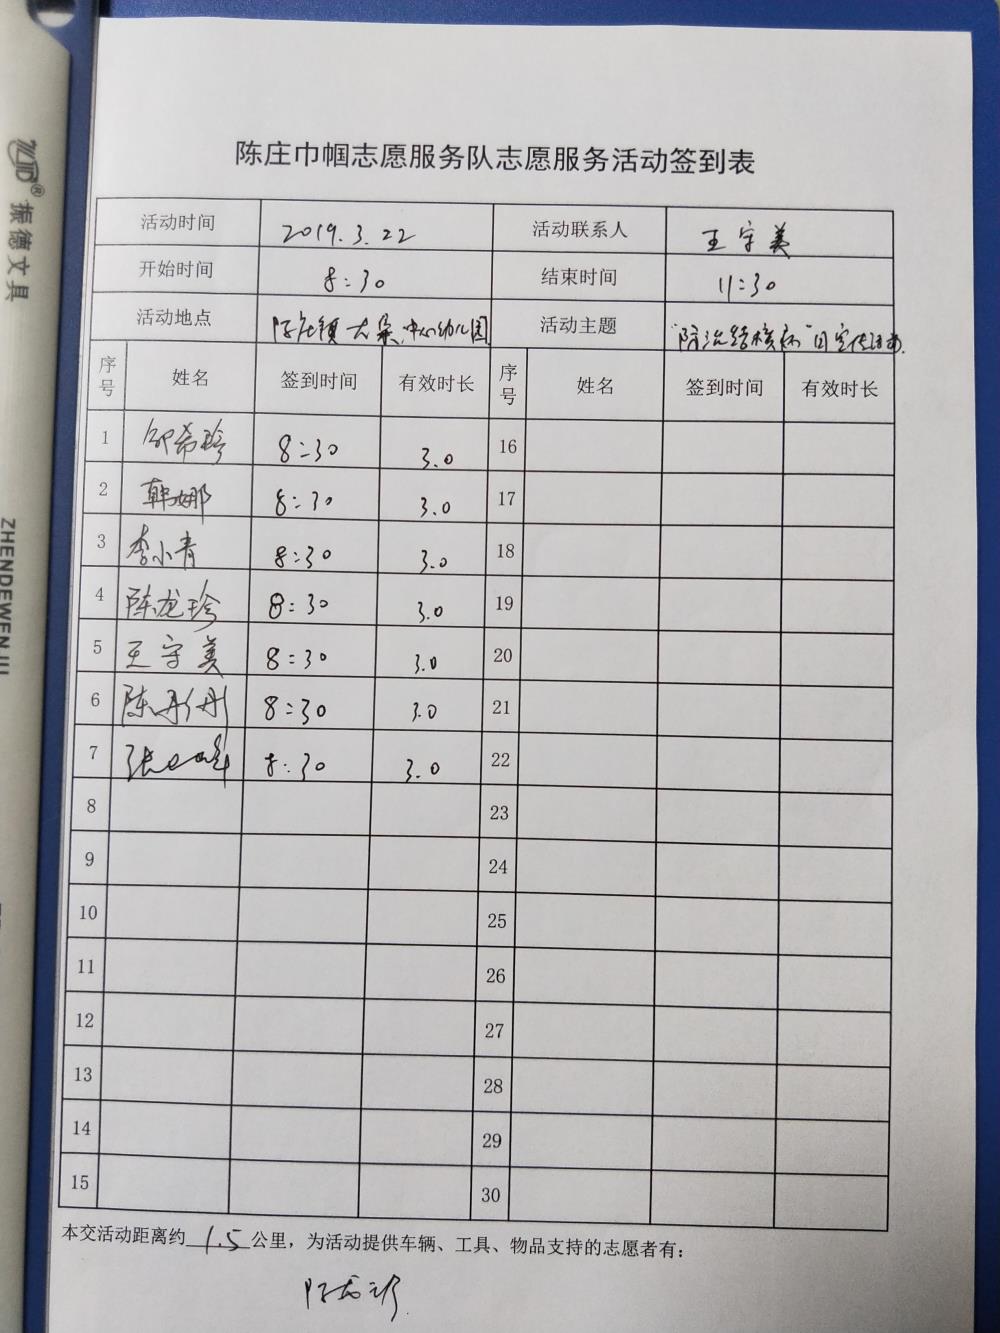 振德文具
ZHENDEWENJU
陈庄巾帼志愿服务队志愿服务活动签到表
活动时间 2019.3.22 活动联系人 王守美
开始时间 8:30 结束时间 11:30
活动地点 陈庄镇大集、中心幼儿园 活动主题 "防治结核病"日宣传活动
序号 姓名 签到时间 有效时长 序号 姓名 签到时间 有效时长
1 邹希珍 8:30 3.0 16
2 韩娜 8:30 3.0 17
3 李小青 8:30 3.0 18
4 陈龙珍 8:30 3.0 19
5 王守美 8:30 3.0 20
6 陈丹丹 8:30 3.0 21
7 张 8:30 3.0 22
8 23
9 24
10 25
11 26
12 27
13 28
14 29
15 30
本交活动距离约 1.5 公里，为活动提供车辆、工具、物品支持的志愿者有：
陈龙珍